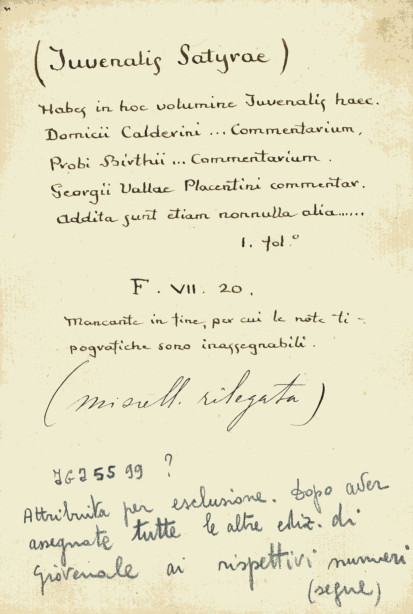 (Juvenalis Satyrae)
Habes in hoc volumine Juvenalis haec.
Domicii Calderini ... Commentarium,
Probi Birthii ... Commentarium.
Georgii Vallae Placentini commentar.
Addita sunt etiam nonnulla alia......
1. fol.º
F. VII. 20.
Mancante in fine, per cui le note ti-
pografiche sono inassegnabili.
(miscell. rilegata)
IGI 5599 ?
Attribuita per esclusione. Dopo aver
assegnate tutte le altre ediz. di
Giovenale ai rispettivi numeri
(segue)